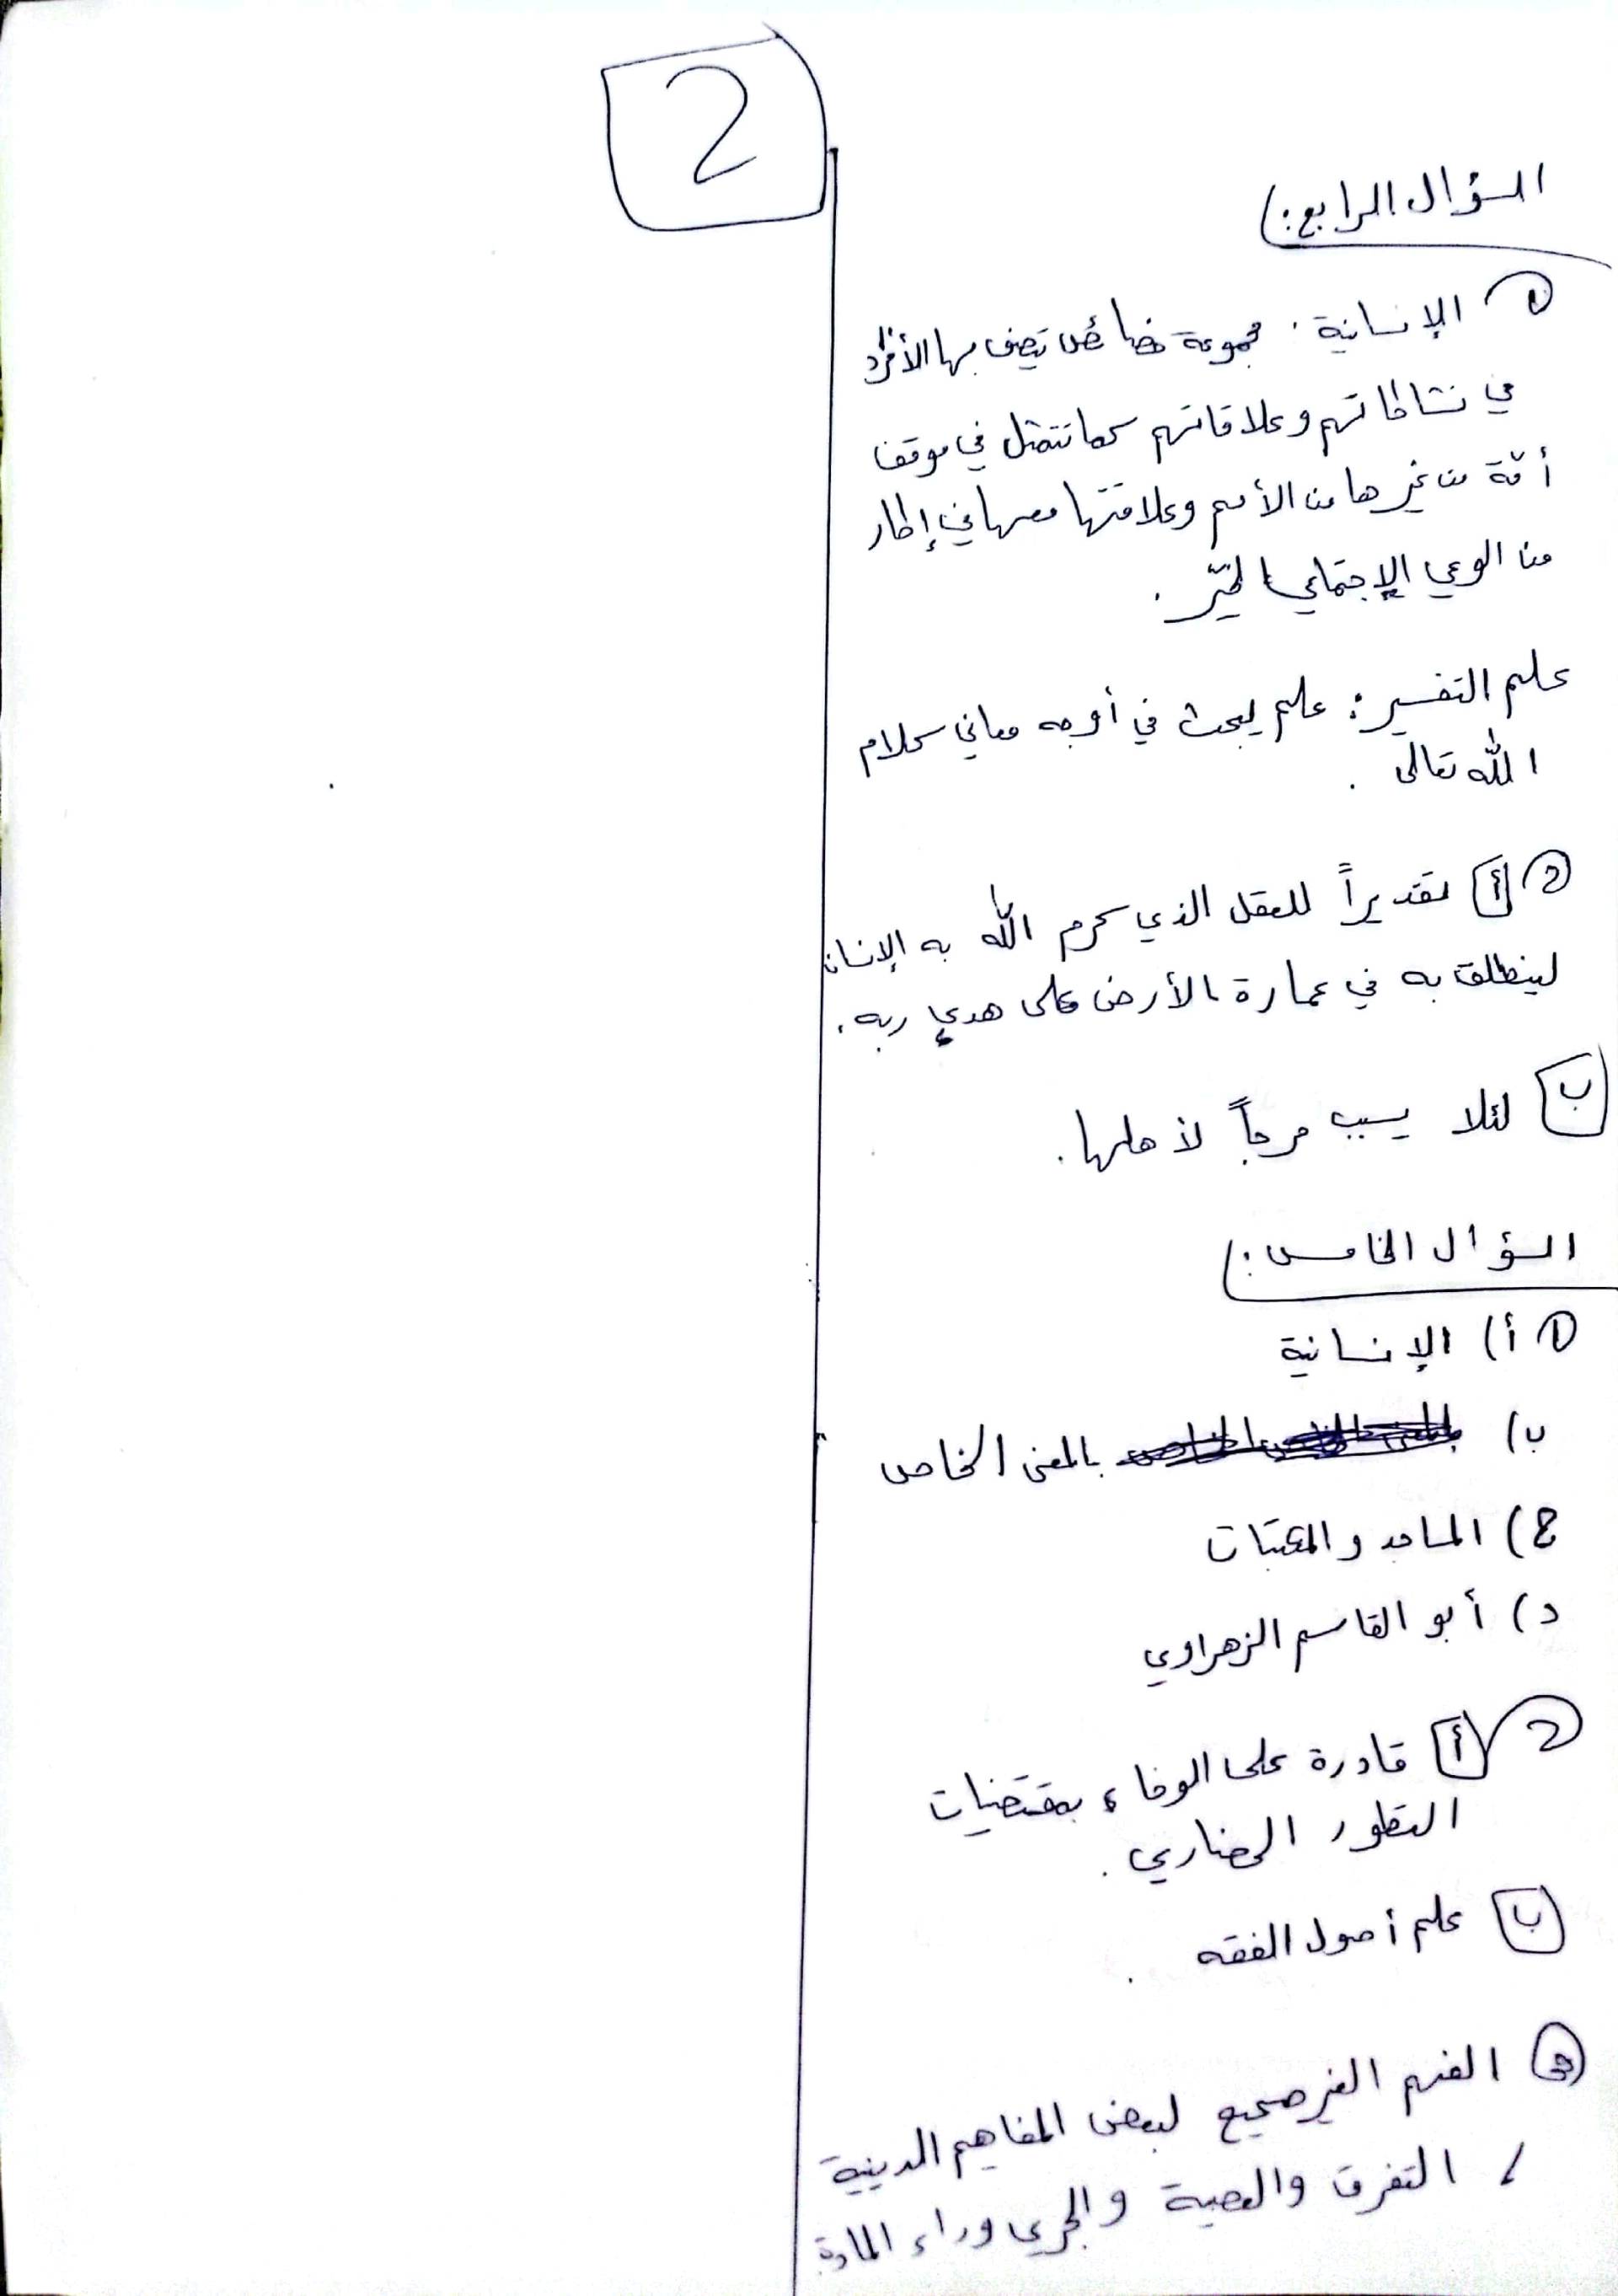 2
السؤال الرابع:
① الإنسانية: مجموعة خصائص تتصف بها الأفراد
في نشاطاتهم وعلاقاتهم كما تتمثل في موقف
أمّة من غيرها من الأمم وعلاقتها معها في إطار
من الوعي الإجتماعي الخيّر.
علم التفسير: علم يبحث في أوجه معاني كلام
الله تعالى.
② أ تقديراً للعقل الذي كرم الله به الإنسان
لينطلق به في عمارة الأرض على هدي ربه.
ب لئلا يسبب حرجاً لأهلها.
السؤال الخامس:
① أ) الإنسانية
ب) بالمعنى الخاص
ج) المساجد والمكتبات
د) أبو القاسم الزهراوي
② أ قادرة على الوفاء بمقتضيات
التطور الحضاري.
ب علم أصول الفقه.
③ الفهم الغير صحيح لبعض المفاهيم الدينية
/ التفرق والعصبية والجري وراء المادة